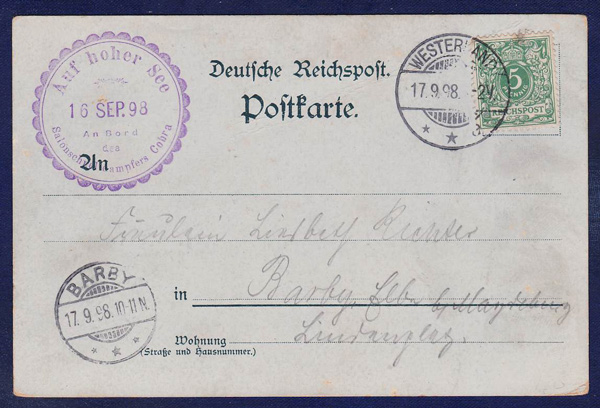 Auf hoher See
16 SEP. 98
An Bord
des
Salonschnelldampfers Cobra
Deutsche Reichspost.
Postkarte.
WESTERLAND
17.9.98. -2V.
5
REICHSPOST
An
Fräulein Liesbeth Richter
in Barby, Elbe b/Magdeburg
Lindenplatz.
BARBY
17.9.98.10-11N.
Wohnung
(Straße und Hausnummer.)